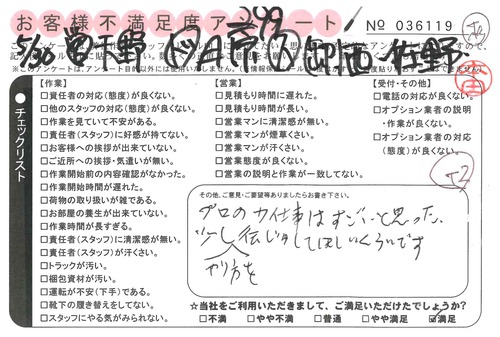 お客様不満足度アンケート
No 036119
5/30
チェックリスト
【作業】
□責任者の対応(態度)が良くない。
□他のスタッフの対応(態度)が良くない。
□作業を見ていて不安がある。
□責任者(スタッフ)に好感が持てない。
□お客様への挨拶が出来ていない。
□ご近所への挨拶・気遣いが無い。
□作業開始前の内容確認がなかった。
□作業開始時間が遅れた。
□荷物の取り扱いが雑である。
□お部屋の養生が出来ていない。
□作業時間が長すぎる。
□責任者(スタッフ)に清潔感が無い。
□責任者(スタッフ)が汗くさい。
□トラックが汚い。
□梱包資材が汚い。
□運転が不安(下手)である。
□靴下の履き替えをしてない。
□スタッフにやる気がみられない。
【営業】
□見積もり時間に遅れた。
□見積もり時間が長い。
□営業マンに清潔感が無い。
□営業マンが煙草くさい。
□営業マンが汗くさい。
□営業態度が良くない。
□営業の説明と作業が一致してない。
【受付・その他】
□電話の対応が良くない。
□オプション業者の説明
・作業が良くない。
□オプション業者の対応
(態度)が良くない。
その他、ご意見・ご要望等ありましたらお書き下さい。
プロの力仕事はすごいと思った。
少し伝じゅしてほしいくらいです
やり方を
☆当社をご利用いただきまして、ご満足いただけたでしょうか?
□不満 □やや不満 □普通 □やや満足 ☑満足